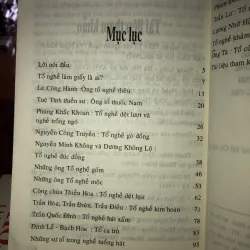 Mục lục
Lời nói đầu 5
Tổ nghề làm giấy là ai?
Lê Công Hành :Ông tổ nghề thêu
Tuệ Tĩnh thiền sư : Ông tổ thuốc Nam
Phùng Khắc Khoan : Tổ nghề dệt lượt và
nghề trồng ngô
Nguyễn Công Truyền : Tổ nghề gò đồng
Nguyễn Minh Không và Dương Không Lộ :
Tổ nghề đúc đồng
Những ông Tổ nghề gốm
Những ông Tổ nghề mộc
Công chúa Thiều Hoa : Tổ nghề dệt lụa
Trần Hòa, Trần Điện, Trần Điền : Tổ nghề kim hoàn
Trần Quốc Đĩnh : Tổ nghề hát xẩm
Đinh Lễ - Bạch Hoa : Tổ ca trù
Những sư tổ trong nghề tuồng hát 93
Trần Lư : Tổ
Lương Như H
Tổ nghề khảm
Ông Tà : Tổ c
Tài liệu tham k